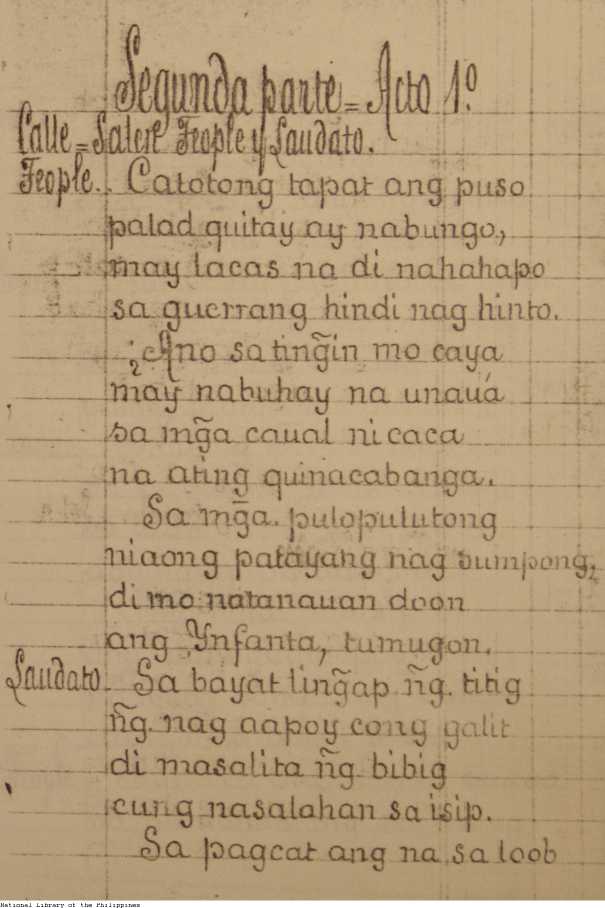 Segunda parte = Acto 1.º
Calle = Saleré Feople y Laudato.
Feople. Catotong tapat ang puso
palad quitay ay nabungo,
may lacas na di nahahapo
sa guerrang hindi nag hinto.
¿Ano sa tin̄gin mo caya
may nabuhay na unauá
sa mg̃a caual ni caca
na ating quinacabanga.
Sa mg̃a. pulopulutong
niaong patayang nag sumpong,
di mo natanauan doon
ang Ynfanta, tumugon.
Laudato. Sa bayat ling̃ap ñg. titig
ñg. nag aapoy cong galit
di masalita ñg. bibig
cung nasalahan sa isip.
Sa pagcat ang na sa loob
National Library of the Philippines